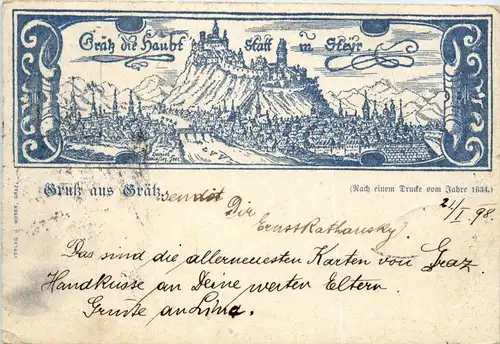 Grätz die Haubt Statt in Steyr
Gruß aus Grätz
(Nach einem Drucke vom Jahre 1634.)
VERLAG J. MOSER, GRAZ.
sendet Dir
21/I. 98.
Ernst Rathausky.
Das sind die allerneuesten Karten von Graz.
Handküsse an Deine werten Eltern.
Grüße an